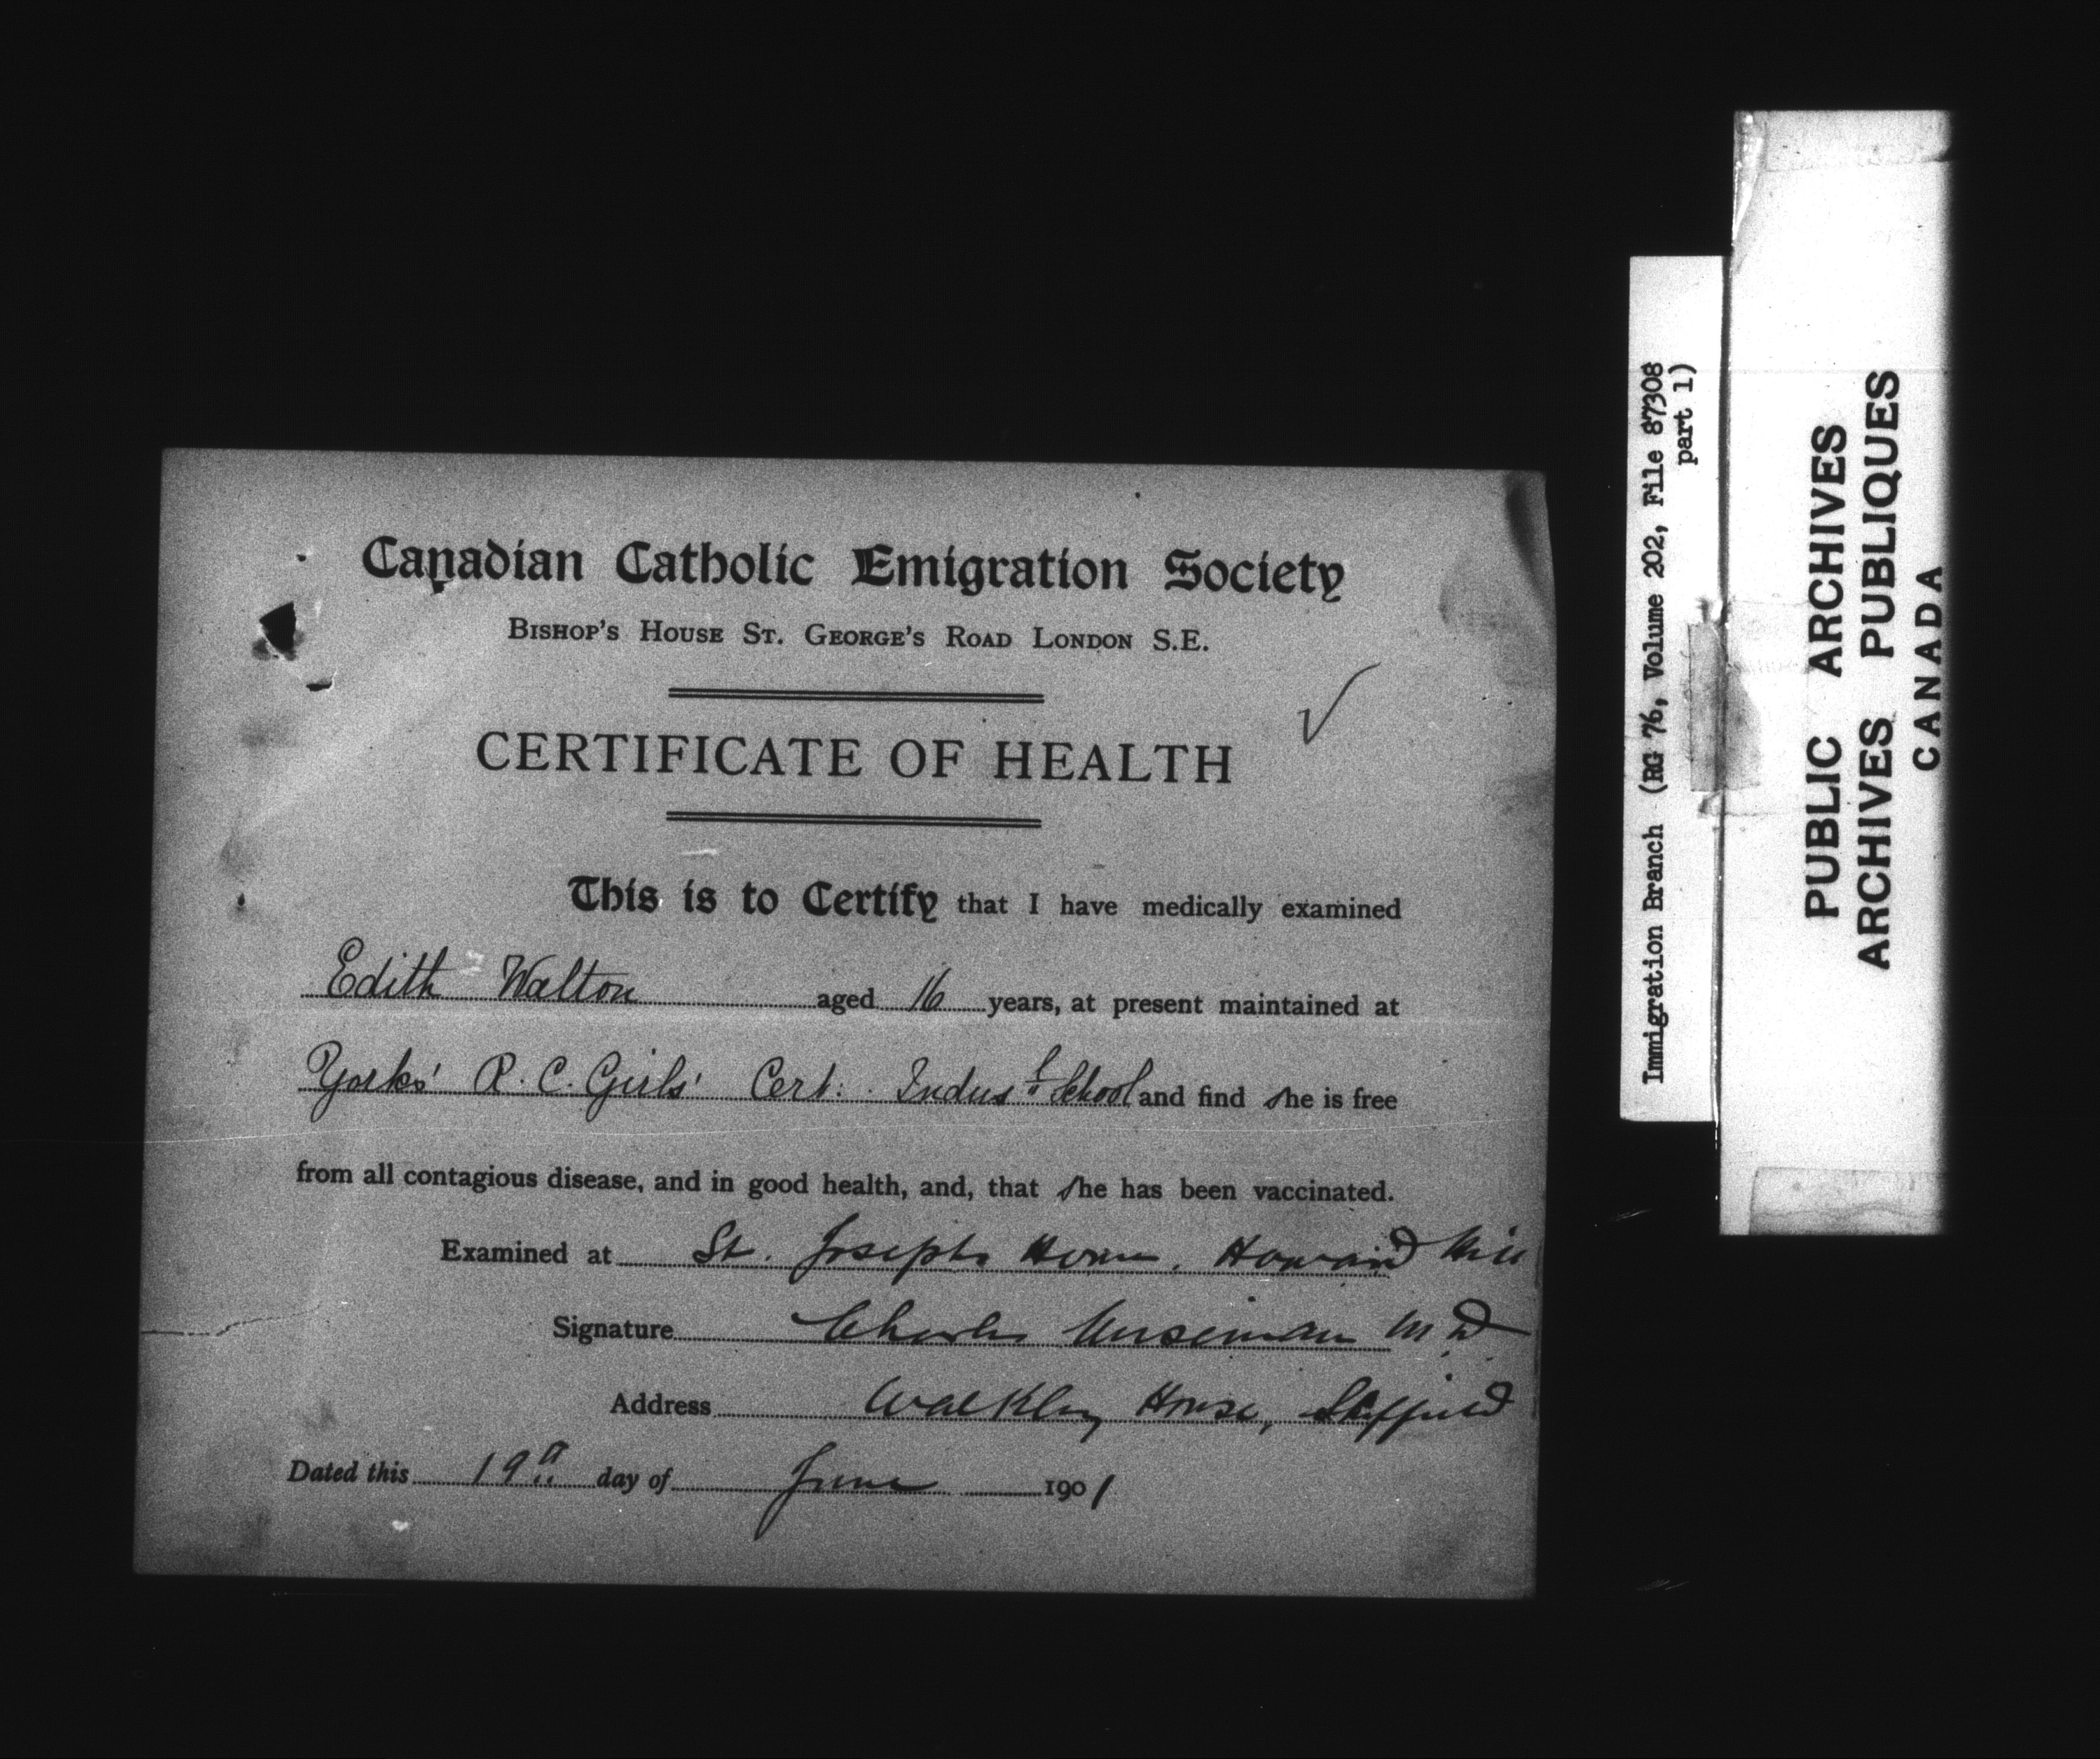 Canadian Catholic Emigration Society
BISHOP'S HOUSE ST. GEORGE'S ROAD LONDON S.E.
CERTIFICATE OF HEALTH
This is to Certify that I have medically examined
Edith Walton aged 16 years, at present maintained at
Yorks' R.C. Girls' Cert: Indusl School and find she is free
from all contagious disease, and in good health, and, that she has been vaccinated.
Examined at St. Josephs Home, Howard Hill
Signature Charles M.D
Address Walkley House, Sheffield
Dated this 19th day of June 1901
Immigration Branch (RG 76, Volume 202, File 87308
part 1)
PUBLIC ARCHIVES
ARCHIVES PUBLIQUES
CANADA